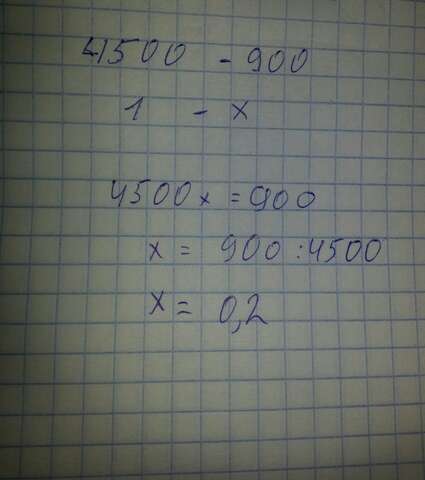 4500 - 900
1 - x
4500x = 900
x = 900 : 4500
x = 0,2